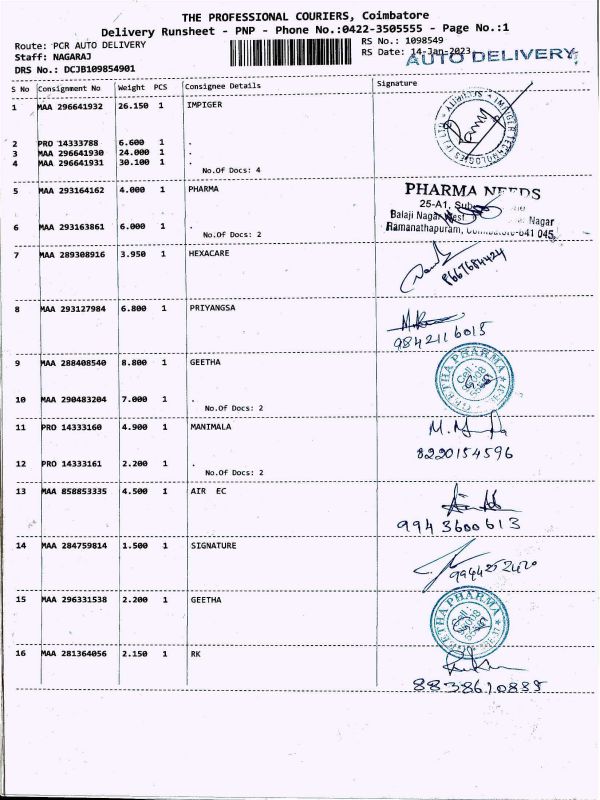 THE PROFESSIONAL COURIERS, Coimbatore
Delivery Runsheet - PNP - Phone No.:0422-3505555 - Page No.:1
Route: PCR AUTO DELIVERY RS No.: 1098549
Staff: NAGARAJ RS Date: 14-Jan-2023
AUTO DELIVERY
DRS No.: DCJB109854901
S No Consignment No Weight PCS Consignee Details Signature
1 MAA 296641932 26.150 1 IMPIGER
2 PRO 14333788 6.600 1 .
3 MAA 296641930 24.000 1 .
4 MAA 296641931 30.100 1 .
No.Of Docs: 4
5 MAA 293164162 4.000 1 PHARMA
PHARMA NEEDS
25-A1,
Balaji Nagar West Nagar
6 MAA 293163861 6.000 1 .
Ramanathapuram, Coimbatore-641 045
No.Of Docs: 2
7 MAA 289308916 3.950 1 HEXACARE
8667684424
8 MAA 293127984 6.800 1 PRIYANGSA
9842116015
9 MAA 288408540 8.800 1 GEETHA
GEETHA PHARMA
10 MAA 290483204 7.000 1 .
No.Of Docs: 2
11 PRO 14333160 4.900 1 MANIMALA
8220154596
12 PRO 14333161 2.200 1 .
No.Of Docs: 2
13 MAA 858853335 4.500 1 AIR EC
9943600613
14 MAA 284759814 1.500 1 SIGNATURE
9944252420
15 MAA 296331538 2.200 1 GEETHA
GEETHA PHARMA
16 MAA 281364056 2.150 1 RK
8838610835